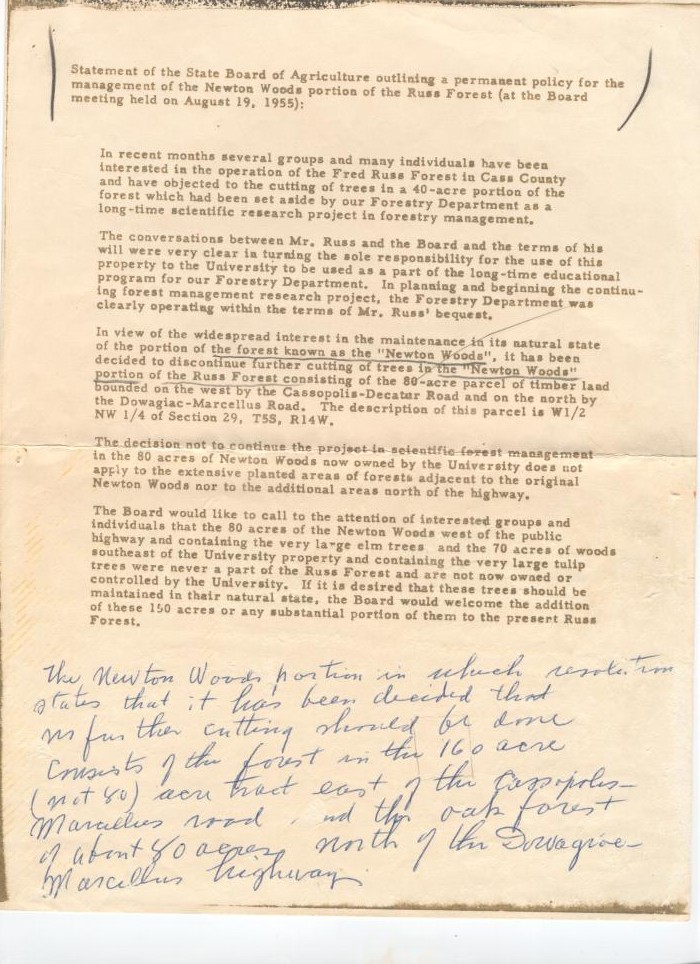 Statement of the State Board of Agriculture outlining a permanent policy for the
management of the Newton Woods portion of the Russ Forest (at the Board
meeting held on August 19, 1955):
In recent months several groups and many individuals have been
interested in the operation of the Fred Russ Forest in Cass County
and have objected to the cutting of trees in a 40-acre portion of the
forest which had been set aside by our Forestry Department as a
long-time scientific research project in forestry management.
The conversations between Mr. Russ and the Board and the terms of his
will were very clear in turning the sole responsibility for the use of this
property to the University to be used as a part of the long-time educational
program for our Forestry Department. In planning and beginning the continu-
ing forest management research project, the Forestry Department was
clearly operating within the terms of Mr. Russ' bequest.
In view of the widespread interest in the maintenance in its natural state
of the portion of the forest known as the "Newton Woods", it has been
decided to discontinue further cutting of trees in the "Newton Woods"
portion of the Russ Forest consisting of the 80-acre parcel of timber land
bounded on the west by the Cassopolis-Decatur Road and on the north by
the Dowagiac-Marcellus Road. The description of this parcel is W1/2
NW 1/4 of Section 29, T5S, R14W.
The decision not to continue the project in scientific forest management
in the 80 acres of Newton Woods now owned by the University does not
apply to the extensive planted areas of forests adjacent to the original
Newton Woods nor to the additional areas north of the highway.
The Board would like to call to the attention of interested groups and
individuals that the 80 acres of the Newton Woods west of the public
highway and containing the very large elm trees and the 70 acres of woods
southeast of the University property and containing the very large tulip
trees were never a part of the Russ Forest and are not now owned or
controlled by the University. If it is desired that these trees should be
maintained in their natural state, the Board would welcome the addition
of these 150 acres or any substantial portion of them to the present Russ
Forest.
The Newton Woods portion in which resolution
states that it has been decided that
no further cutting should be done
consists of the forest in the 160 acre
(not 80) acre tract east of the Cassopolis-
Marcellus road, and the oak forest
of about 80 acres north of the Dowagiac-
Marcellus highway.